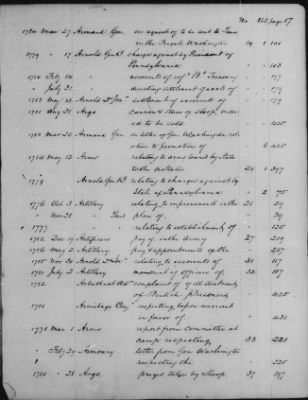 No Vol page 67
1780 Mar 27 Armand Gen on request of to be sent to Gen
in the Freight Washington 14 1 101
1779 " 17 Arnold Genl B. charges against by President of
Pennsylvania " " 103
1780 Feb 14 " accounts of ref Bd Treasury " " 177
" July 31 " directing settlement accts of " " 179
1783 May 12 Arnold Dr Jon settlement of accounts of " " 179
1781 Aug 31 Argo cannon & stores of sloop,
ed to be sold " " 425
1783 Mar 20 Armand Gen letter of Gen Washington
& promotion of " 6 425
1784 May 12 Arms relating to arms loaned by State
to the United States 20 1 397
1779 Arnold Genl B. relating to charges against by
State of Pennsylvania " 2 75
1776 Oct 3 Artillery relating to improvements in the 21 " 29
" Nov 28 " plan of " 39
" 1777 " relating to establishment of " " 135
1782 Dec 19 Artificers pay of with army 27 " 209
1786 May 2 Artillery pay & appointments of the " " 257
1785 Nov 30 Arnold Dr Jon relating to accounts of 31 " 117
1781 July 2 Artillery memorial of officers of 32 " 117
1782 complaint of ill treatment
of British prisoners " " 425
1780 Armitage Benj reporting upon warrant
in favor of " " 431
1775 Mar 1 Arms report from Committee at
camp respecting 33 " 221
" Feb 29 Armoury letter from Gen Washington
respecting the " " 225
1780 " 28 Argo prizes taken by Sloop 37 " 197